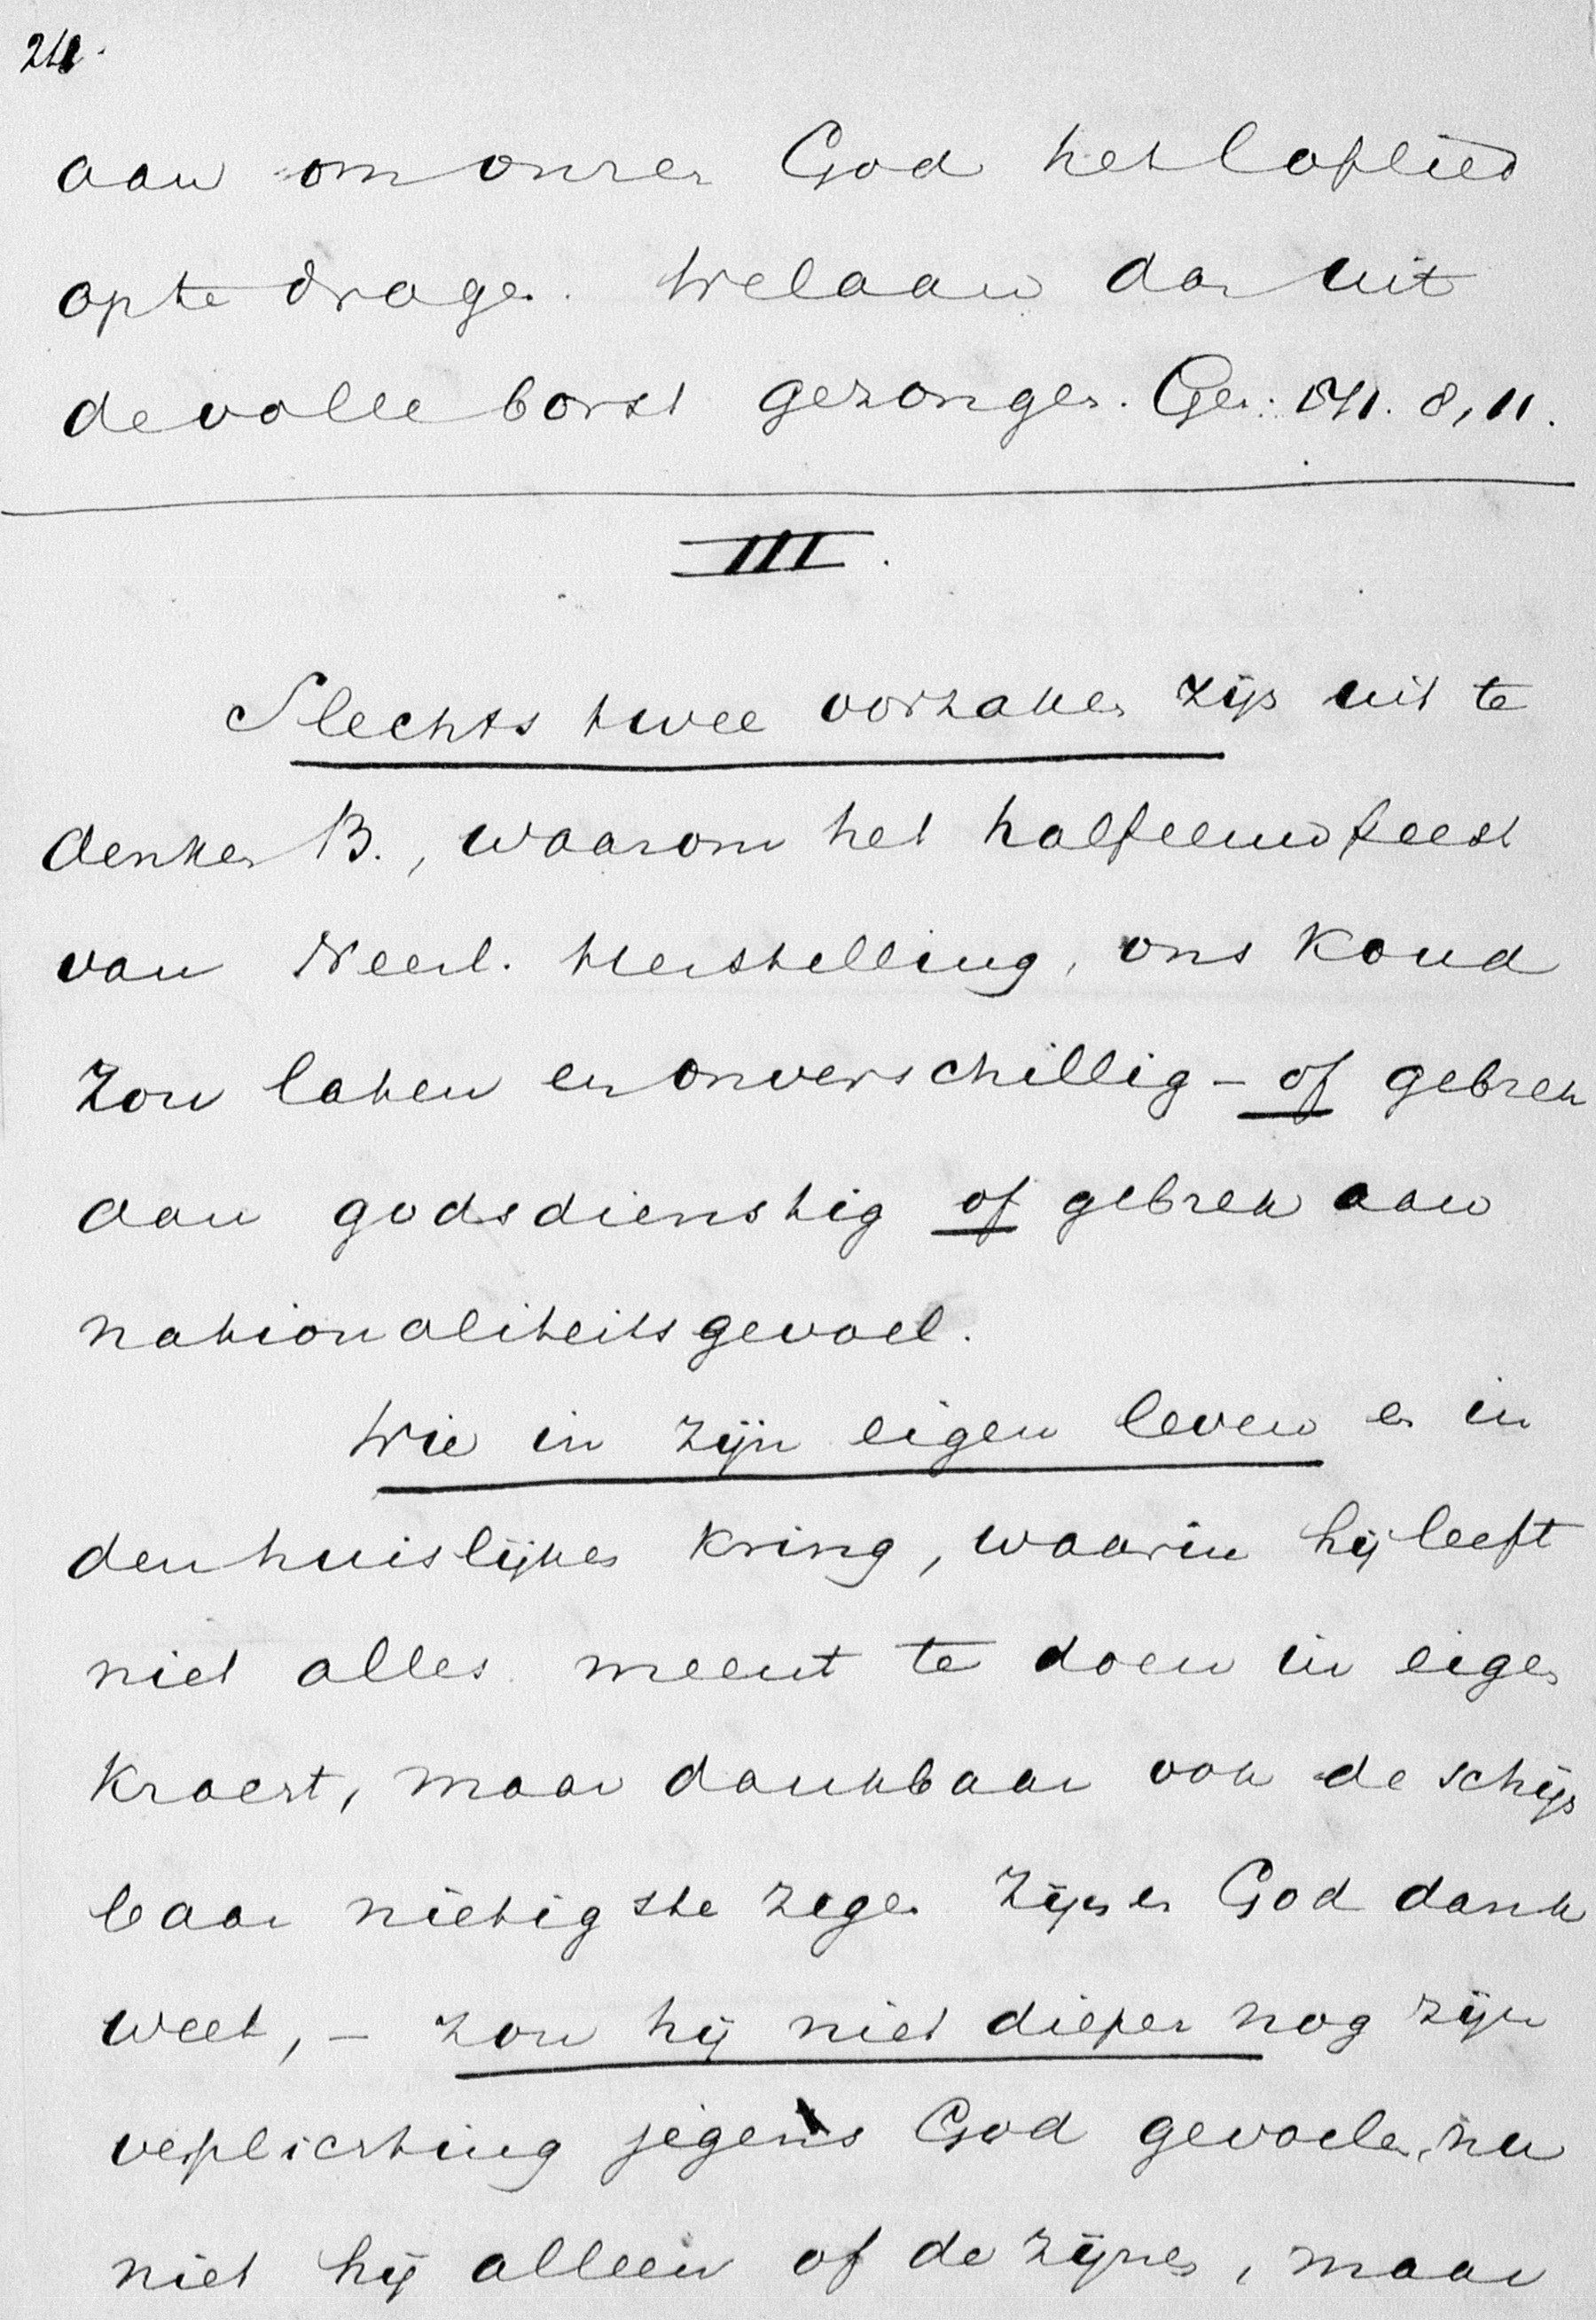 aan om onzen God het loflied
op te dragen. Welaan dan uit
de volle borst gezongen. Gez. 8, 11.
III.
Slechts twee oorzaken zijn uit te
denken B., waarom het halfeeuwfeest
van Neerl. Herstelling, ons koud
zou laten en onverschillig – of gebrek
aan godsdienstig of gebrek aan
nationaliteitsgevoel.
Wie in zijn eigen leven en in
den huislijken kring, waarin hij leeft
niet alles meent te doen in eigen
kracht, maar dankbaar ook de schijn
baar nietigste zegen zijnen God dank
weet, – zou hij niet dieper nog zijn
verplichting jegens God gevoelen, nu
niet hij alleen of de zijnen, maar